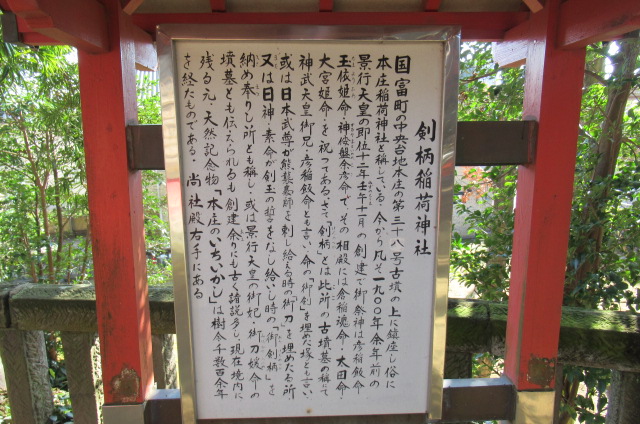 剣柄稲荷神社
国富町の中央台地本庄の第三十八号古墳の上に鎮座し俗に
本庄稲荷神社と称している。今から凡そ一九〇〇年余年前の
景行天皇の即位十二年壬午十一月の創建で御祭神は彦稲飯命・
玉依姫命・神倭盤余彦命でその相殿には倉稲魂命・大田命・
大宮姫命・を祝ってある。さて、剣柄とは此所の古墳墓の称にて
神武天皇御兄・彦稲飯命と言い命の「御剣」を埋めた塚とも言い、
或は日本武尊が熊襲墓師を刺し給える時の「御刀」を埋めたる所
又は日神・素命が剣玉の誓をなし給いし時の「御剣柄」を
納め奉りし所とも称し、或は景行天皇の御妃「御刀媛命」の
墳墓とも伝えられるも創建余りにも古く諸説多し、現在境内に
残る元、天然記念物「本庄のいちいがし」は樹令千数百余年
を経たものである。尚社殿右手にある